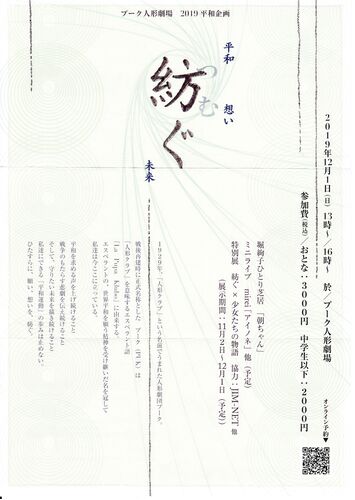 プーク人形劇場　2019 平和企画
平和
つむ
紡ぐ
想い
未来
2019年12月1日（日）13時～／16時～　於／プーク人形劇場
参加費（税込）／おとな：3000円　中学生以下：2000円
オンライン予約▼
堀絢子ひとり芝居　「朝ちゃん」
ミニライブ　mirei「ドイノネ」他（予定）
特別展　紡ぐ×少女たちの物語　協力：JIM-NET 他
（展示期間：11月2日～12月1日（予定））
1929年、「人形クラブ」という名前でうまれた人形劇団プーク。
戦後再建時に正式名称とした　プーク（PUK）は
「人形クラブ」を意味するエスペラント語
「La Pupa Klubo」に由来する。
エスペラントの、世界平和を願う精神を受け継いだ名を冠して
私達は今ここに立っている。
平和を求める声を上げ続けること
戦争のもたらす悲劇を伝え続けること
そして、守りたい未来を描き続けること
私達にできる「平和運動」の歩みは止めない。
ひたすらに、祈り、願い、想いを、紡ぐ。